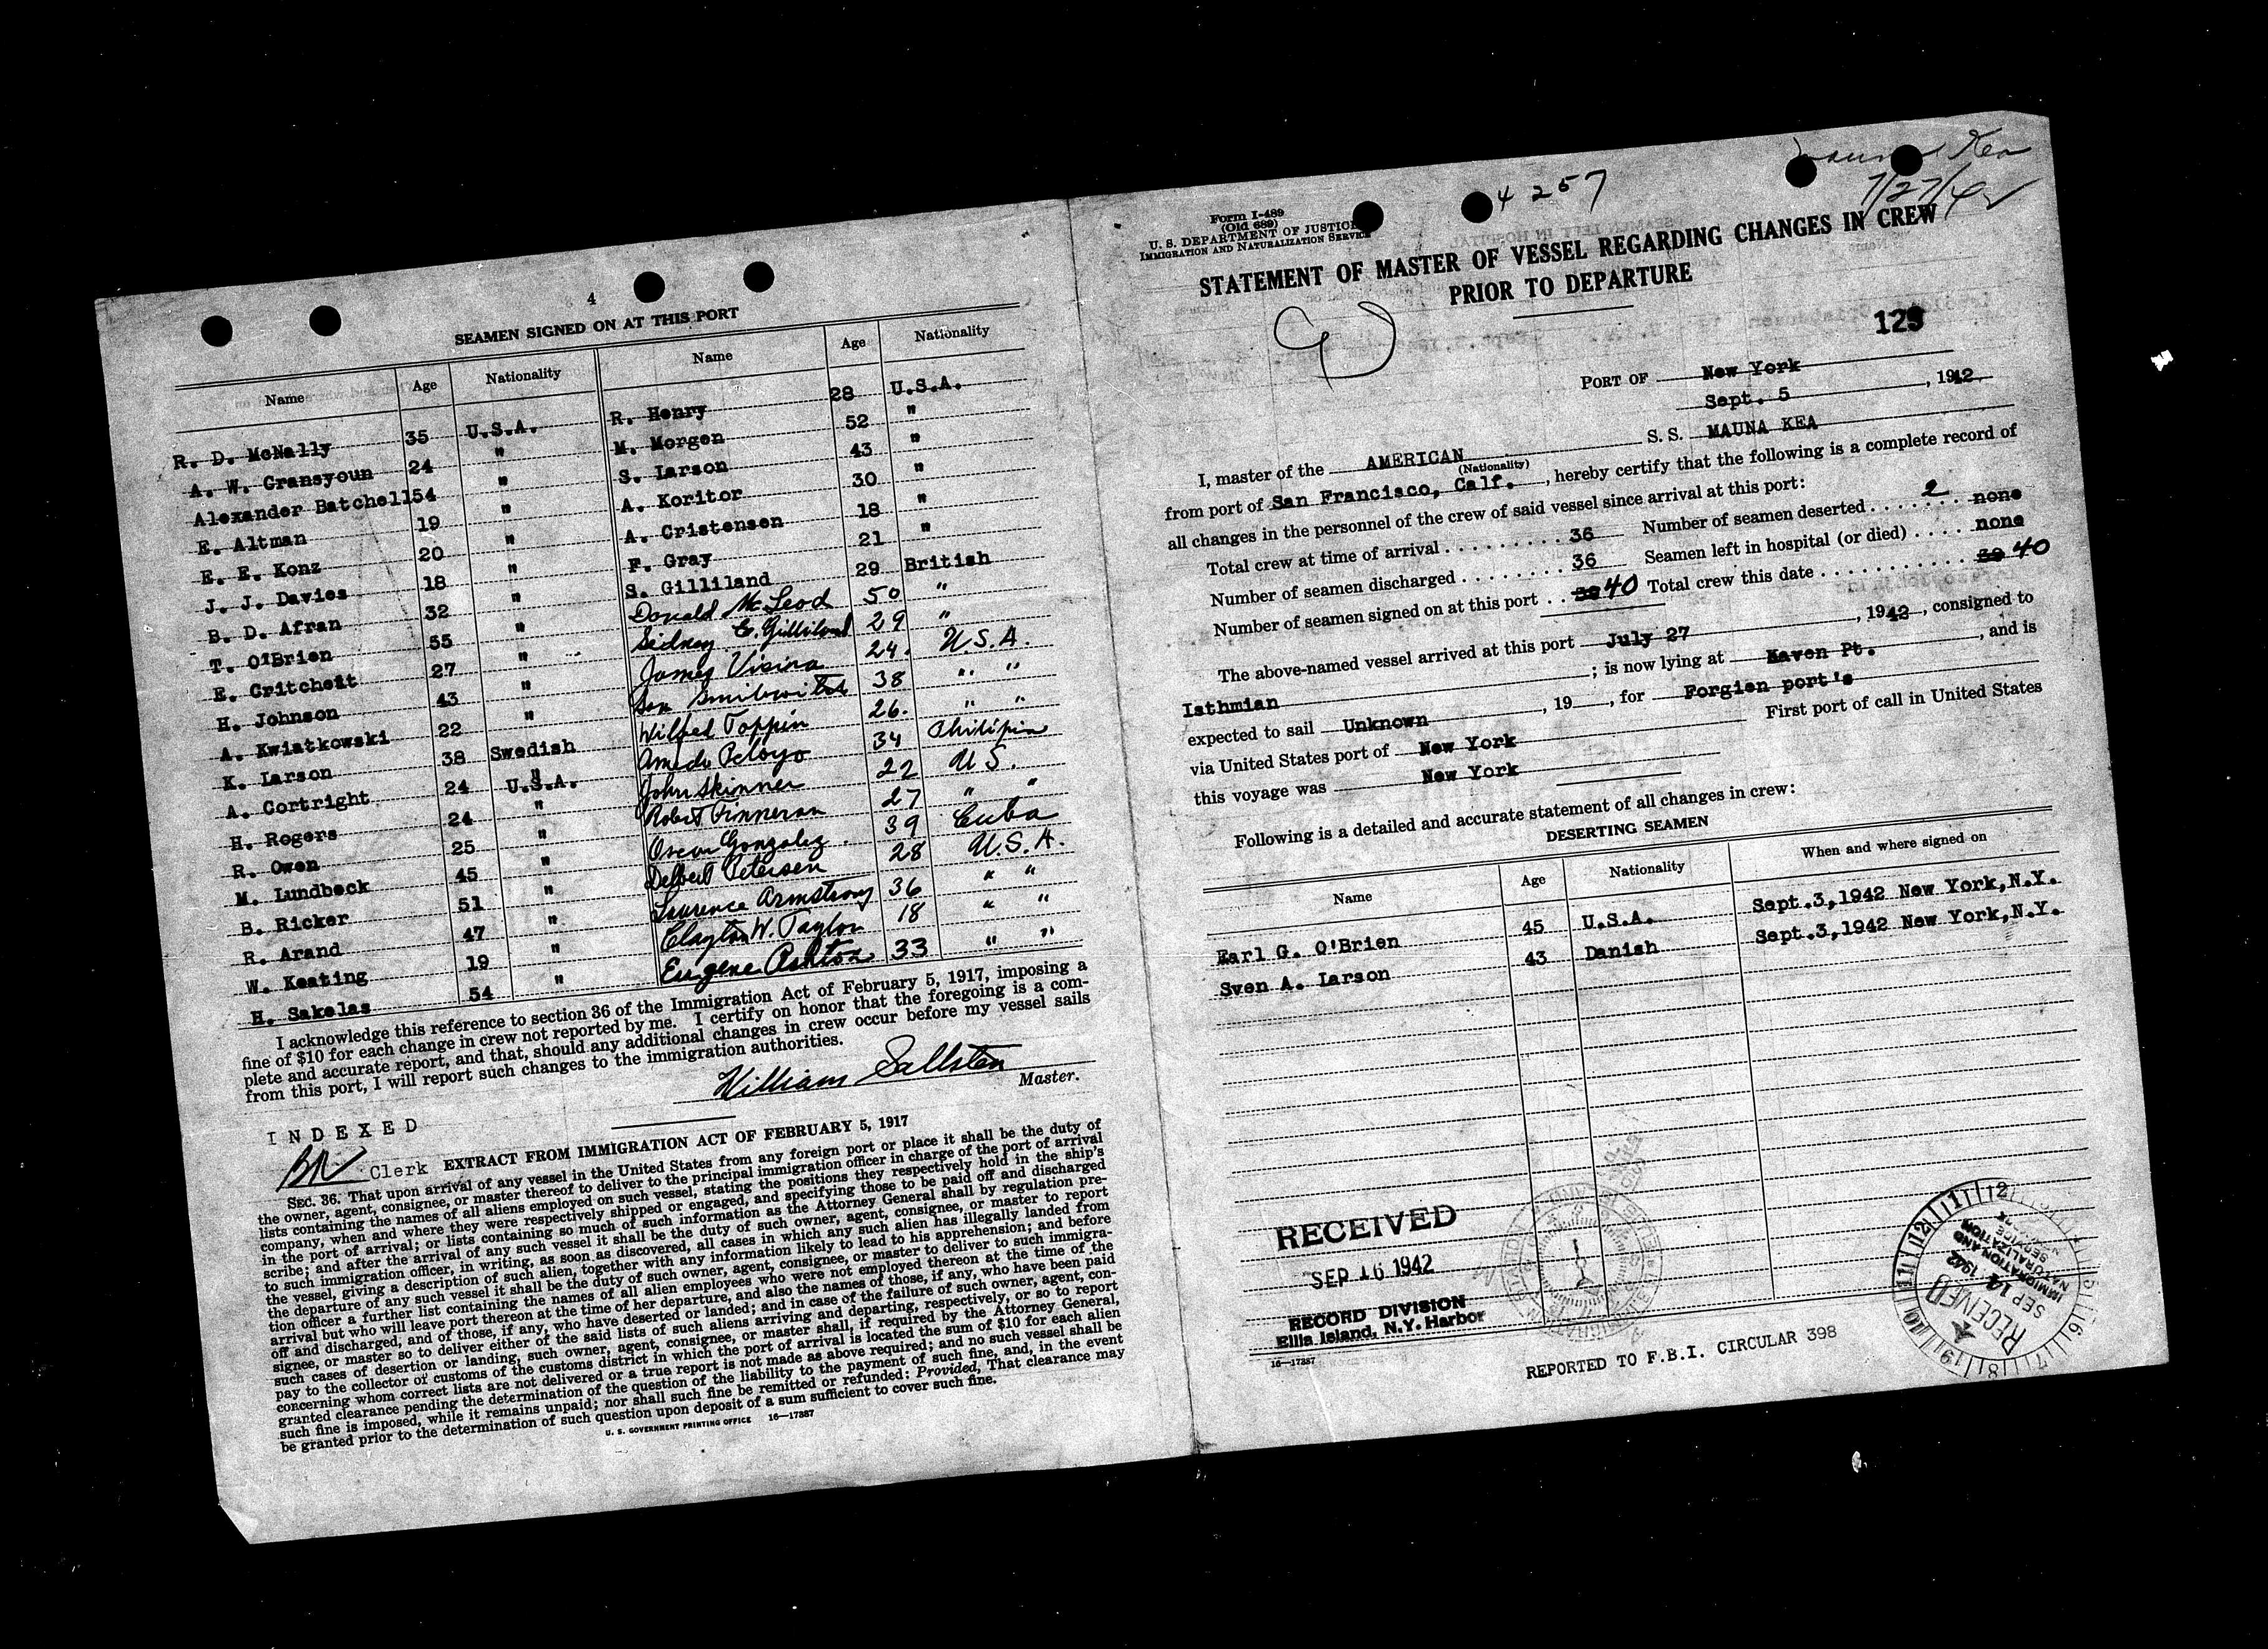 4
SEAMEN SIGNED ON AT THIS PORT
Name Age Nationality Name Age Nationality
R. D. McNally 35 U.S.A. R. Henry 28 U.S.A.
A. W. Gransyoun 24 " M. Morgen 52 "
Alexander Batchell 54 " S. Larson 43 "
E. Altman 19 " A. Koritor 30 "
E. E. Konz 20 " A. Cristensen 18 "
J. J. Davies 18 " F. Gray 21 "
B. D. Afran 32 " S. Gilliland 29 British
T. O'Brien 55 " Donald McLeod 50 "
E. Critchett 27 " Sidney Gilliland 29 "
H. Johnson 43 " James Vieira 24. U.S.A.
A. Kwiatkowski 22 " 38 " "
K. Larson 38 Swedish Wilfred Toppin 26. " "
A. Cortright 24 U.S.A. Amedo Peloyo 34 Philipin
H. Rogers 24 " John Skinner 22 U.S.
R. Owen 25 " Robert Finneran 27 " "
M. Lundbeck 45 " Oscar Gonzalez. 39 Cuba
B. Ricker 51 " Delbert Petersen 28 U.S.A.
R. Arand 47 " Laurence Armstrong 36 " "
W. Keating 19 " Clayton W. Taylor 18 " "
H. Sakelas 54 " Eugene Ashton 33 " "
I acknowledge this reference to section 36 of the Immigration Act of February 5, 1917, imposing a
fine of $10 for each change in crew not reported by me. I certify on honor that the foregoing is a com-
plete and accurate report, and that, should any additional changes in crew occur before my vessel sails
from this port, I will report such changes to the immigration authorities.
William Sallsten
Master.
INDEXED
Clerk
EXTRACT FROM IMMIGRATION ACT OF FEBRUARY 5, 1917
SEC. 36. That upon arrival of any vessel in the United States from any foreign port or place it shall be the duty of
the owner, agent, consignee, or master thereof to deliver to the principal immigration officer in charge of the port of arrival
lists containing the names of all aliens employed on such vessel, stating the positions they respectively hold in the ship's
company, when and where they were respectively shipped or engaged, and specifying those to be paid off and discharged
in the port of arrival; or lists containing so much of such information as the Attorney General shall by regulation pre-
scribe; and after the arrival of any such vessel it shall be the duty of such owner, agent, consignee, or master to report
to such immigration officer, in writing, as soon as discovered, all cases in which any such alien has illegally landed from
the vessel, giving a description of such alien, together with any information likely to lead to his apprehension; and before
the departure of any such vessel it shall be the duty of such owner, agent, consignee, or master to deliver to such immigra-
tion officer a further list containing the names of all alien employees who were not employed thereon at the time of the
arrival but who will leave port thereon at the time of her departure, and also the names of those, if any, who have been paid
off and discharged, and of those, if any, who have deserted or landed; and in case of the failure of such owner, agent, con-
signee, or master so to deliver either of the said lists of such aliens arriving and departing, respectively, or so to report
such cases of desertion or landing, such owner, agent, consignee, or master shall, if required by the Attorney General,
pay to the collector of customs of the customs district in which the port of arrival is located the sum of $10 for each alien
concerning whom correct lists are not delivered or a true report is not made as above required; and no such vessel shall be
granted clearance pending the determination of the question of the liability to the payment of such fine, and, in the event
such fine is imposed, while it remains unpaid; nor shall such fine be remitted or refunded: Provided, That clearance may
be granted prior to the determination of such question upon deposit of a sum sufficient to cover such fine.
U. S. GOVERNMENT PRINTING OFFICE 16—17387
Mauna Kea
7/27/42
4257
Form I-489
(Old 689)
U. S. DEPARTMENT OF JUSTICE
IMMIGRATION AND NATURALIZATION SERVICE
STATEMENT OF MASTER OF VESSEL REGARDING CHANGES IN CREW
PRIOR TO DEPARTURE
129
PORT OF New York
Sept. 5, 1942
I, master of the AMERICAN S. S. MAUNA KEA
(Nationality)
from port of San Francisco, Calf., hereby certify that the following is a complete record of
all changes in the personnel of the crew of said vessel since arrival at this port:
Total crew at time of arrival . . . . . . . . . 36 Number of seamen deserted . . . . . 2 . none
Number of seamen discharged . . . . . . . . 36 Seamen left in hospital (or died) . . . . none
Number of seamen signed on at this port . . 39 40 Total crew this date . . . . . . . . . . . 39 40
The above-named vessel arrived at this port July 27, 1942, consigned to
Isthmian; is now lying at Haven Pt., and is
expected to sail Unknown, 19 , for Forgien port's
via United States port of New York First port of call in United States
this voyage was New York
Following is a detailed and accurate statement of all changes in crew:
DESERTING SEAMEN
Name Age Nationality When and where signed on
Earl G. O'Brien 45 U.S.A. Sept.3,1942 New York,N.Y.
Sven A. Larson 43 Danish Sept.3,1942 New York,N.Y.
RECEIVED
SEP 16 1942
RECORD DIVISION
Ellis Island, N.Y. Harbor
16—17387
REPORTED TO F.B.I. CIRCULAR 398
RECEIVED
SEP 14 1942
IMMIGRATION AND
NATURALIZATION
SERVICE